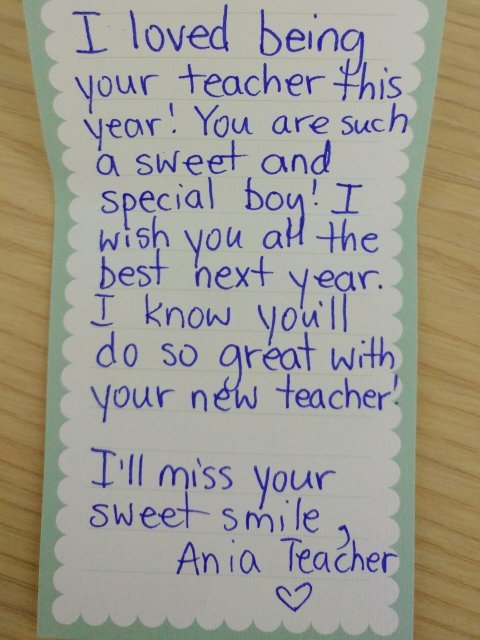 I loved being
your teacher this
year! You are such
a sweet and
special boy! I
wish you all the
best next year.
I know you'll
do so great with
your new teacher!
I'll miss your
sweet smile,
Ania Teacher
♡